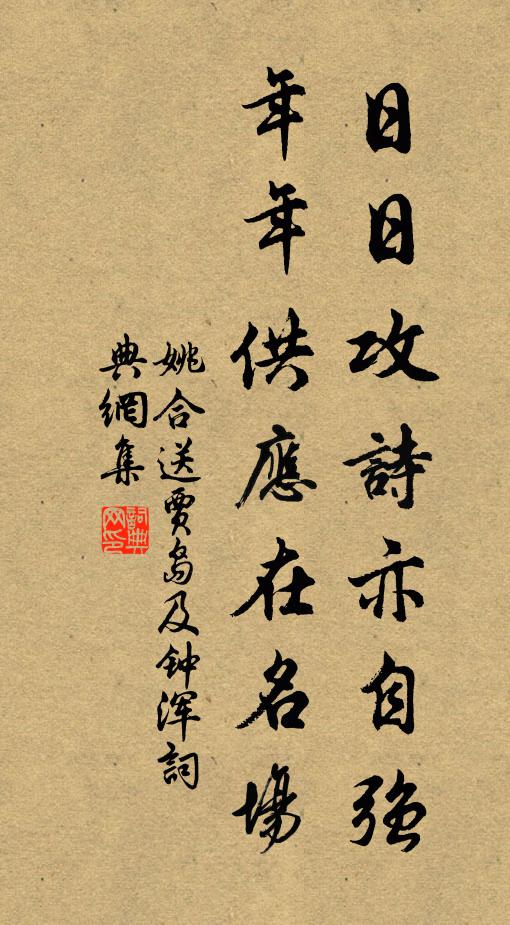 日日攻詩亦自強
年年供應在名場
姚合送賈島及钟渾詞
典網集
詞典
网印